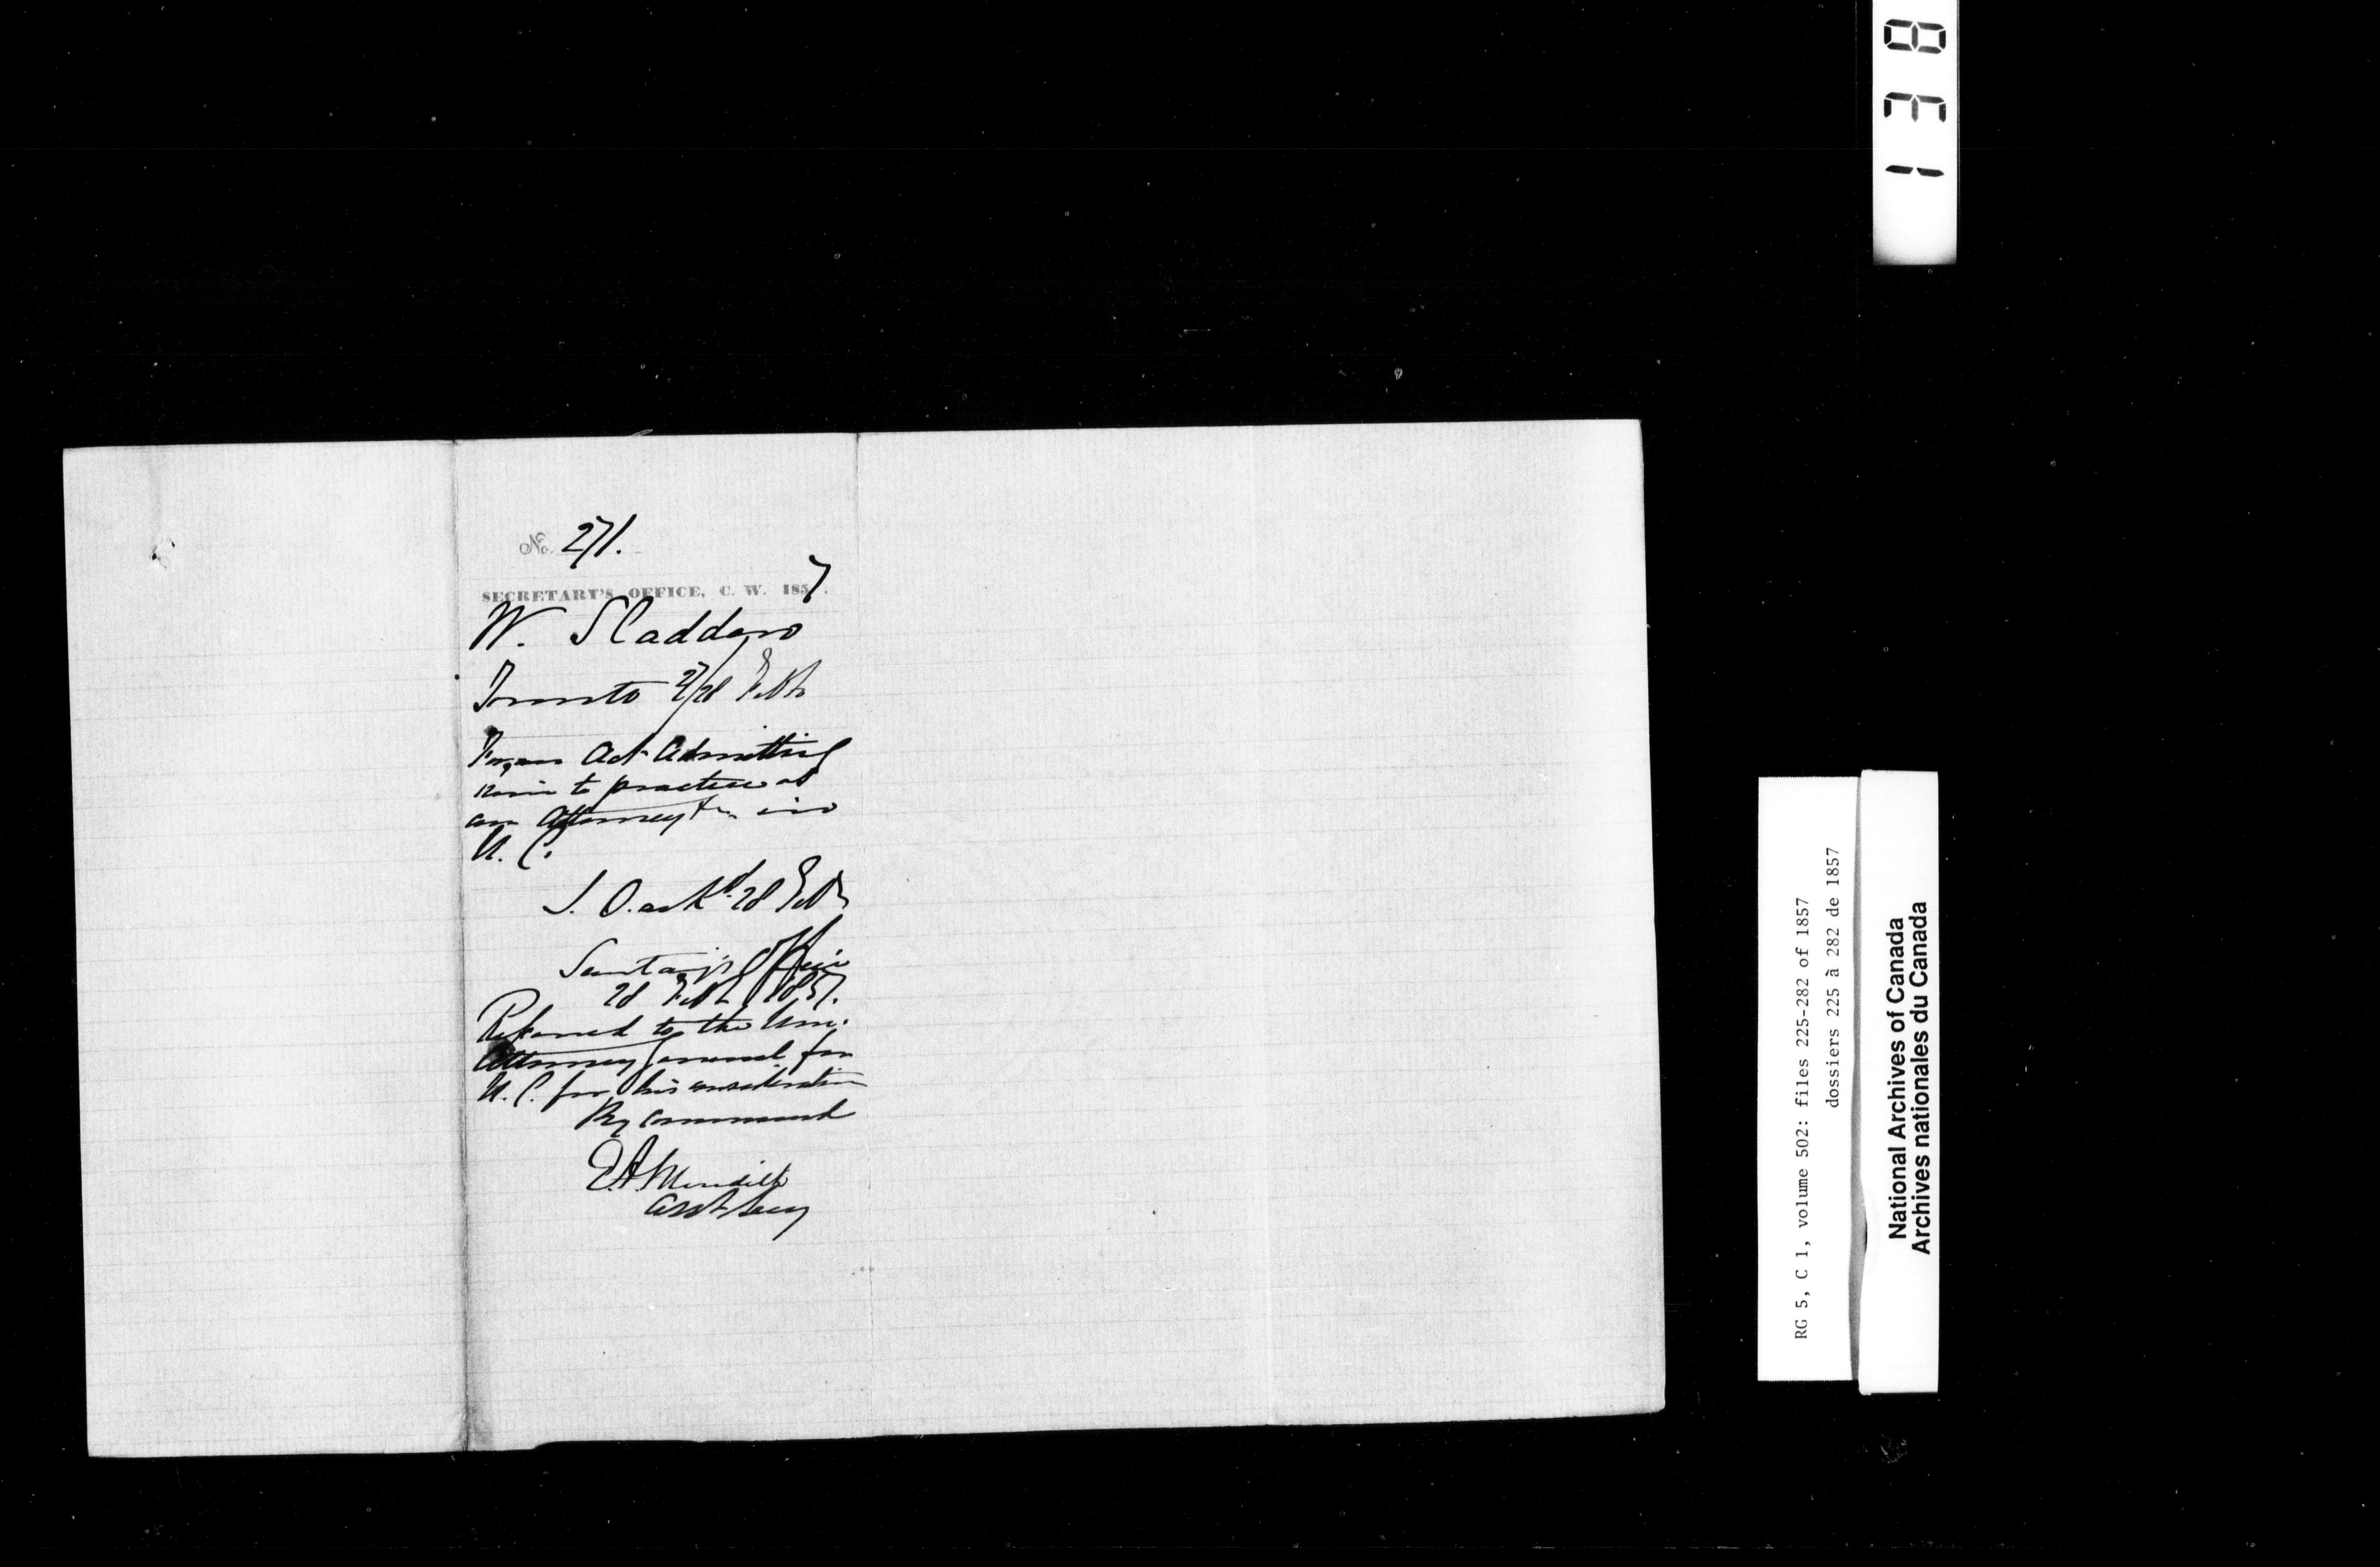 No. 271.
SECRETARY'S OFFICE, C. W. 1857.
W. Sladden
Toronto 27/28 Feby
For an Act Admitting
him to practice as
an Attorney &c. in
U. C.
ackd. 28 Feby
Secretary's Office
28 Feby 1857.
Referred to the Hon.
Attorney General for
U. C. for his consideration
By Command
E. A. Meredith
Asst Secy
138
RG 5, C 1, volume 502: files 225-282 of 1857
dossiers 225 à 282 de 1857
National Archives of Canada
Archives nationales du Canada